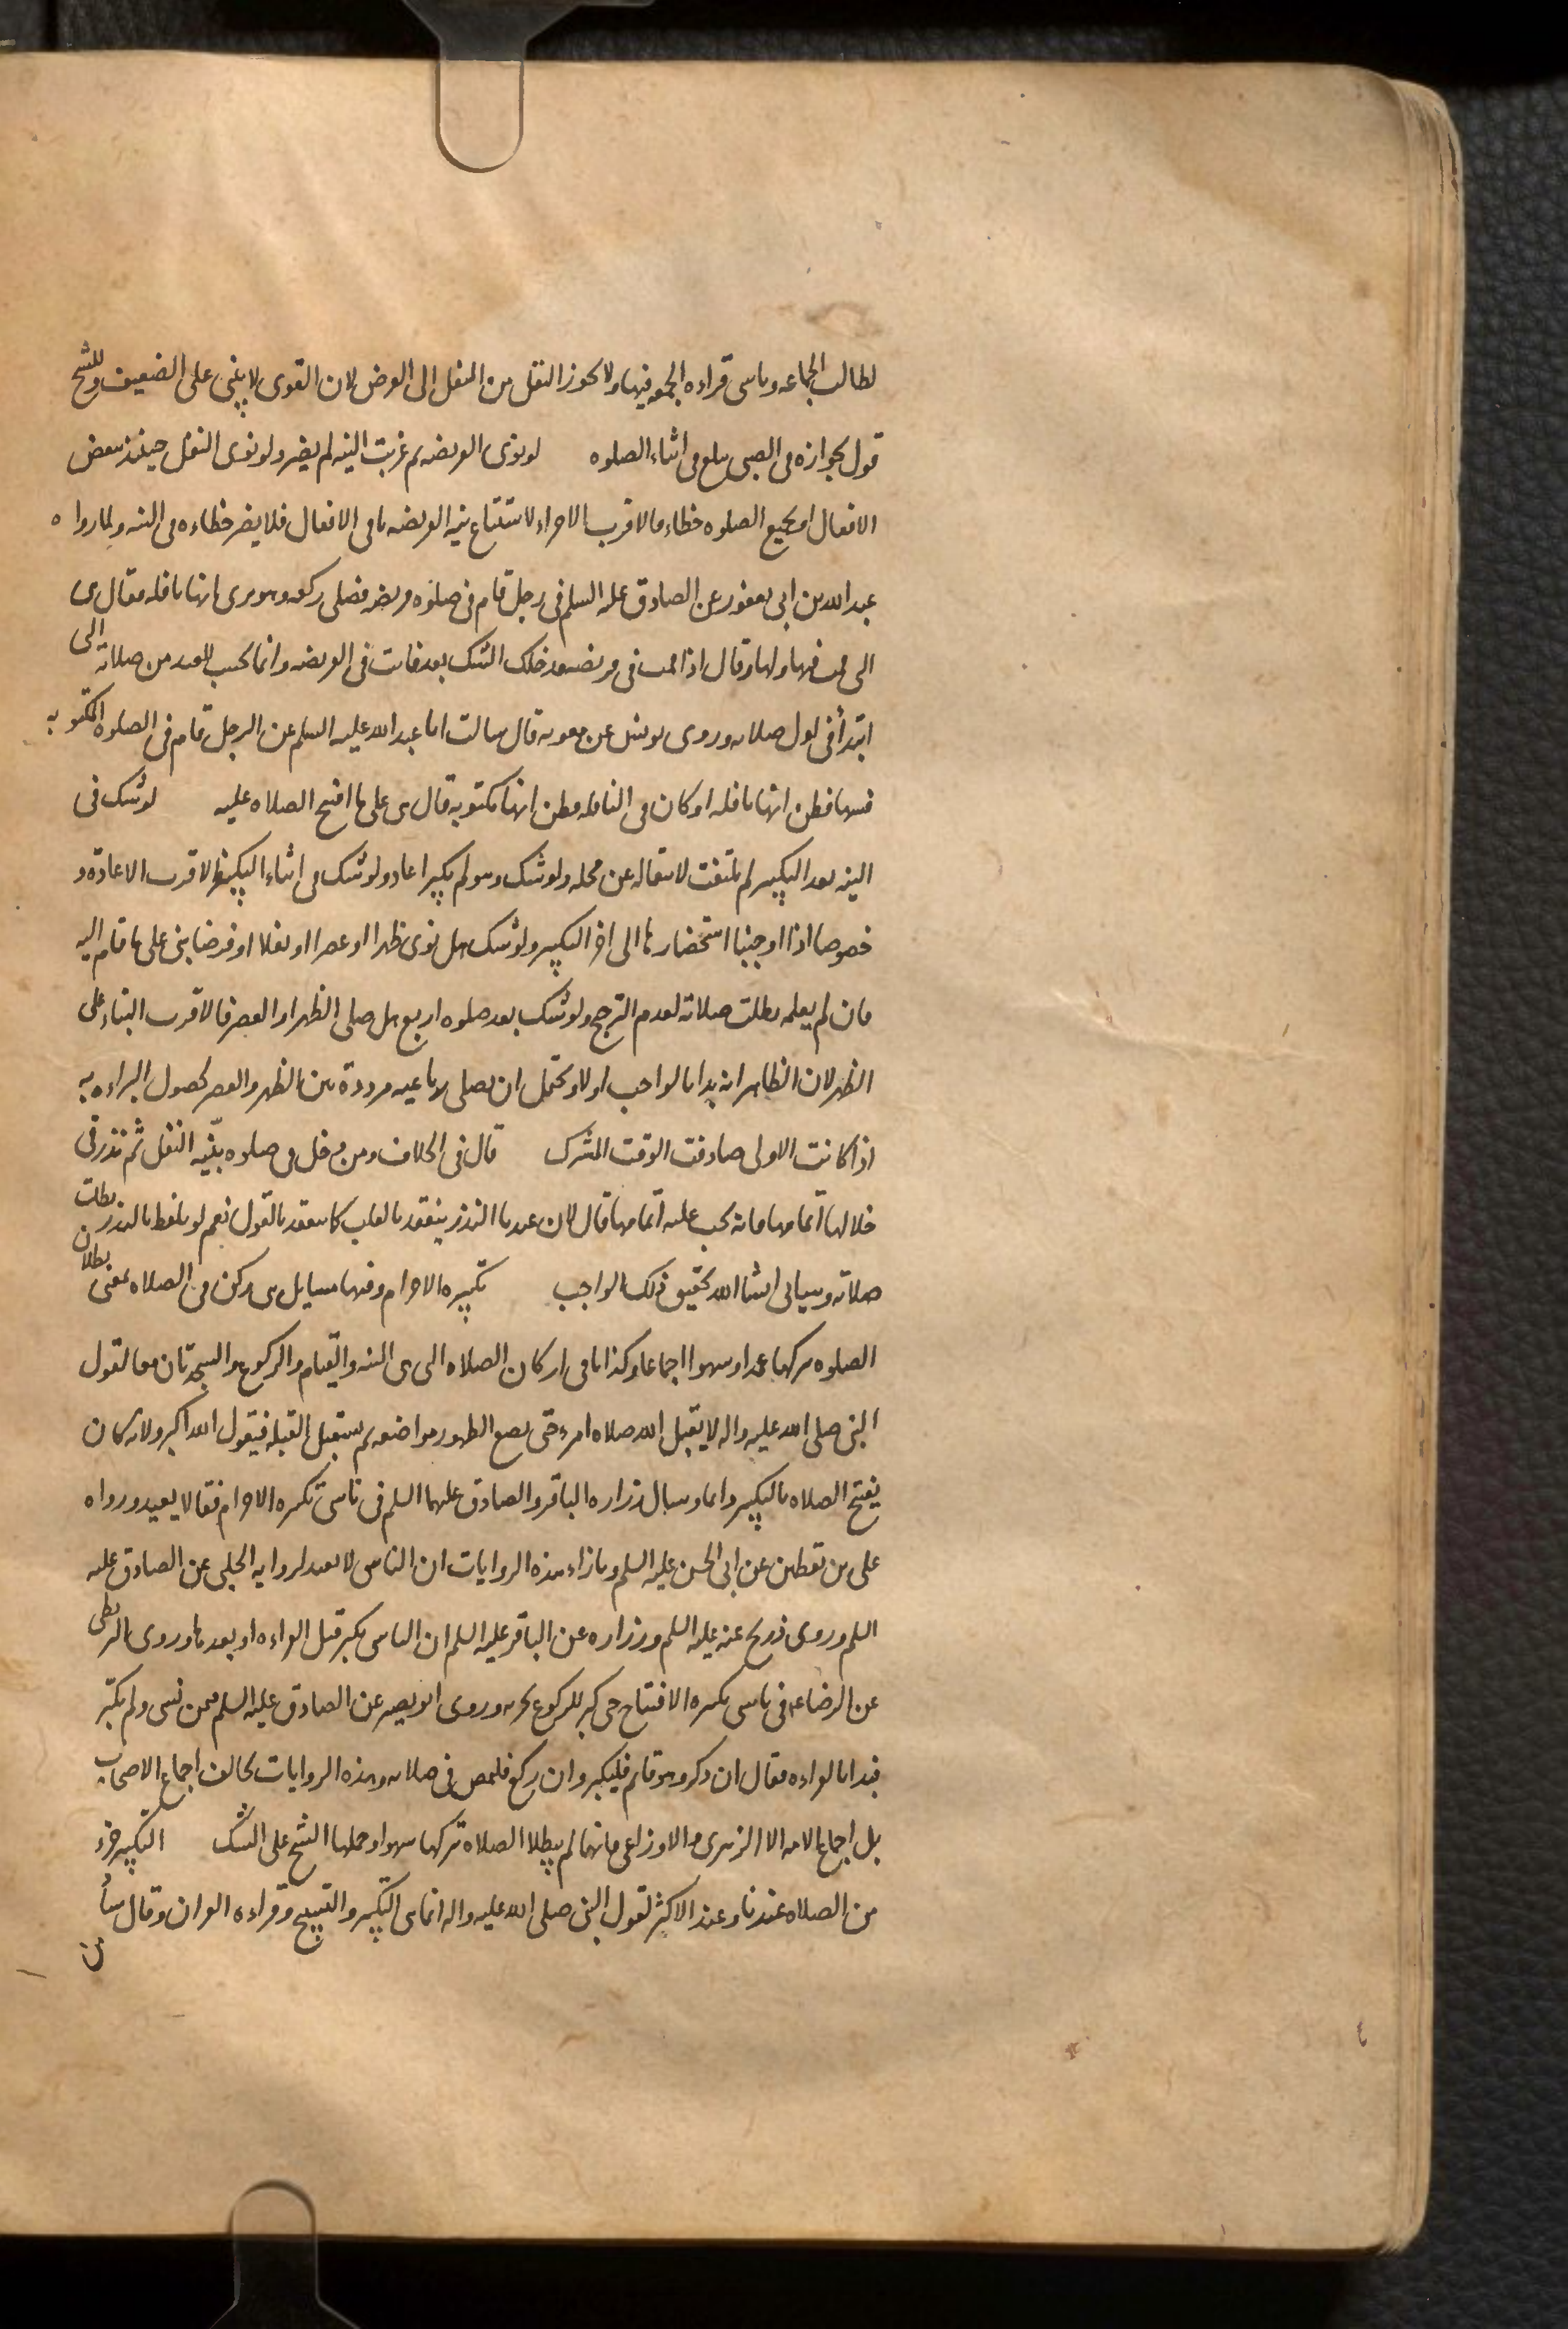 لطالب الجماعه وناسى قراءه الجمعه فيها ولا يجوز النقل من النفل الى الفرض لان القوى لا يبنى على الضعيف وللشيخ
قول بجوازه فى الصبى يبلغ فى اثناء الصلوه لو نوى الفريضه ثم عزبت النيه لم يضر ولو نوى النفل حينئذ ببعض
الافعال او بجميع الصلوه خطاء فالاقرب الاجزاء لاستتباع نيه الفريضه باقى الافعال فلا يضر خطاءه فى النيه ولما رواه
عبد الله بن ابى يعفور عن الصادق عليه السلم فى رجل قام فى صلوه فريضه فصلى ركعه وهو يرى انها نافله فقال هى
التى قمت فيها ولها وقال اذا قمت فى فريضه فدخلك الشك بعد فانت فى الفريضه وانما يحسب للعبد من صلاته التى
ابتدأ فى اول صلاته وروى يونس عن معويه قال سالت ابا عبد الله عليه السلم عن الرجل قام فى الصلوه المكتوبه
فسها فظن انها نافله او كان فى النافله فظن انها مكتوبه قال هى على ما افتتح الصلاه عليه لو شك فى
النيه بعد التكبير لم يلتفت لانتقاله عن محله ولو شك وهو لم يكبر اعاد ولو شك فى اثناء التكبير فالاقرب الاعاده و
خصوصا اذا اوجبنا استحضارها الى اخر التكبير ولو شك هل نوى ظهرا او عصرا او نفلا او فرضا بنى على ما قام اليه
فان لم يعلمه بطلت صلاته لعدم الترجيح ولو شك بعد صلوه اربع هل صلى الظهر او العصر فالاقرب البناء على
الظهر لان الظاهر انه بدا بالواجب اولا ويحتمل ان يصلى رباعيه مردده بين الظهر والعصر لحصول البراءه به
اذا كانت الاولى صادفت الوقت المشترك قال فى الخلاف ومن دخل فى صلوه بنيّه النفل ثم نذر فى
خلالها اتمامها فانه يجب عليه اتمامها قال لان عندنا النذر ينعقد بالقلب كما ينعقد بالقول نعم لو تلفظ بالنذر بطلت
صلاته وسياتى انشا الله تحقيق ذلك الواجب تكبيره الاحرام وفيها مسايل هى ركن فى الصلاه بمعنى بطلان
الصلوه بتركها عمدا او سهوا اجماعا وكذا باقى اركان الصلاه التى هى النيه والقيام والركوع والسجدتان معا لقول
النبى صلى الله عليه واله لا يقبل الله صلاه امرء حتى يضع الطهور مواضعه ثم يستقبل القبله فيقول الله اكبر ولانه كان
يفتتح الصلاه بالتكبير دائما وسال زراره الباقر والصادق عليهما السلم فى ناسى تكبيره الاحرام فقالا يعيد ورواه
على بن يقطين عن ابى الحسن عليه السلم وبازاء هذه الروايات ان الناسى لا يعيد لروايه الحلبى عن الصادق عليه
السلم وروى ذريح عنه عليه السلم وزراره عن الباقر عليه السلم ان الناسى يكبر قبل القراءه او بعدها وروى البزنطى
عن الرضا عه فى ناسى تكبيره الافتتاح حتى كبر للركوع يجزيه وروى ابو بصير عن الصادق عليه السلم فيمن نسى ولم يكبر
فبدا بالقراءه فقال ان ذكر وهو قايم فليكبر وان ركع فليمض فى صلاته وهذه الروايات تخالف اجماع الاصحاب
بل اجماع الامه الا الزهرى والاوزاعى فانهما لم يبطلا الصلاه بتركها سهوا وحملها الشيخ على الشك التكبير جزء
من الصلاه عندنا وعند الاكثر لقول النبى صلى الله عليه واله انما هى التكبير والتسبيح وقراءه القران وقال شا